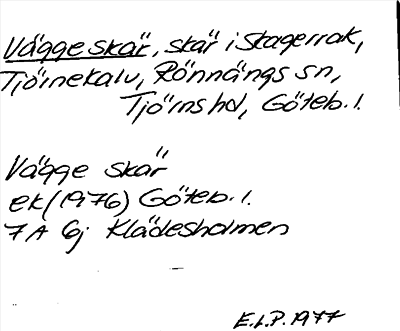 Väggeskär, skär i Skagerrak,
Tjörnekalv, Rönnängs sn,
Tjörns hd, Göteb. l.
Vägge skär
ek (1976) Göteb. l.
7 A 6j Klädesholmen
E.L.P. 1977